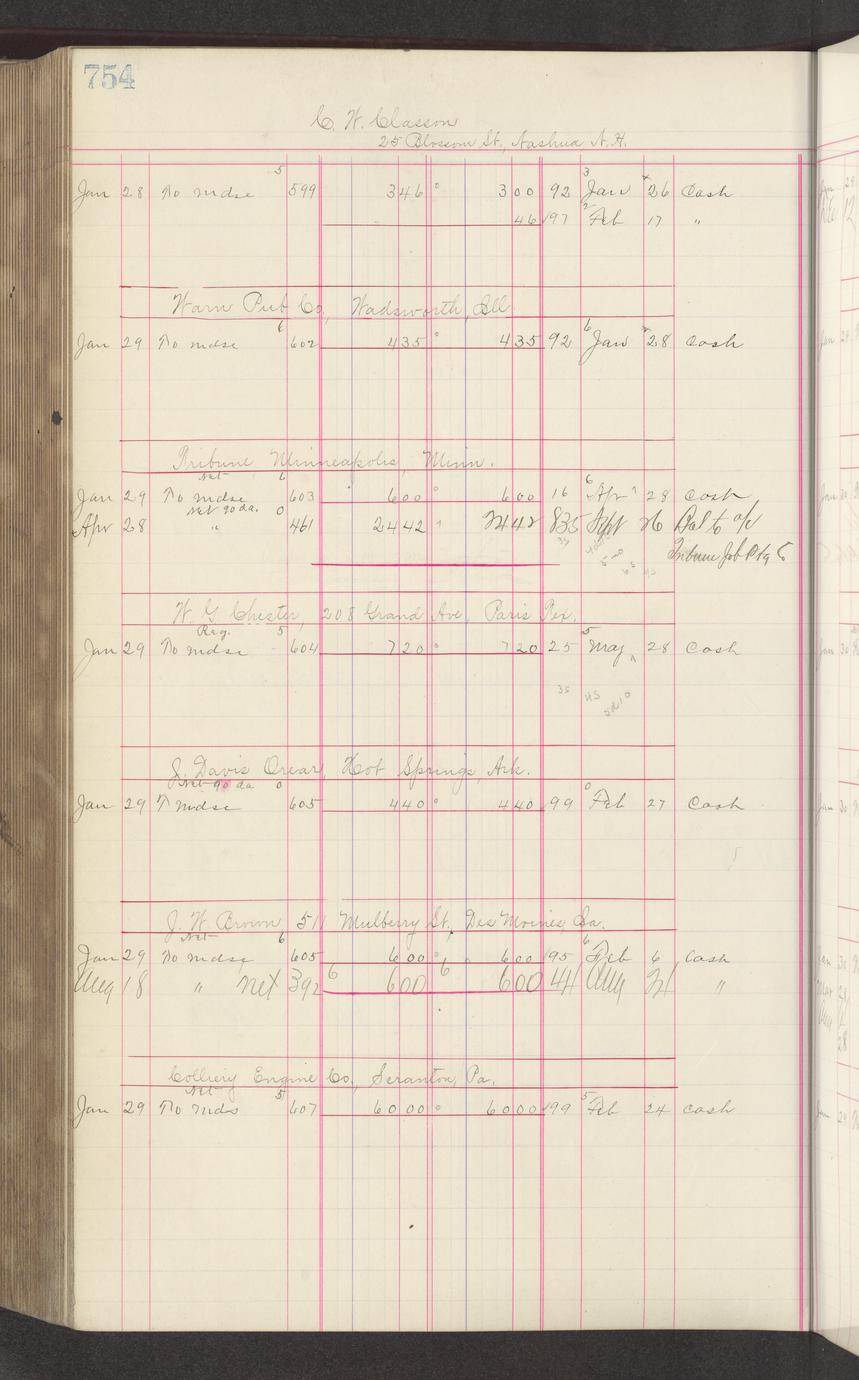 754
C. W. Classon
25 Blossom St., Nashua N.H.
5 3
Jan 28 To mdse 599 346 ° 300 92 Jan 26 Cash
46 97 2 Feb 17 "
Warn Pub Co, Wadsworth, Ill
6 6
Jan 29 To mdse 602 435 ° 435 92 Jan 28 Cash
Tribune Minneapolis, Minn.
Net 6 6
Jan 29 To mdse 603 600 ° 600 16 Apr 28 Cash
Net 90 da. 0
Apr 28 " 461 2442 2442 835 Sept 26 Bal to a/c
Tribune Job Ptg C
W. G. Chester, 208 Grand Ave, Paris Tex.
Reg. 5 5
Jan 29 To mdse 604 720 ° 720 25 May 28 Cash
35 45 5d10
J. Davis Orear, Hot Springs, Ark.
Net 90 da 0 0
Jan 29 T mdse 605 440 ° 440 99 Feb 27 Cash
J. W. Brown 511 Mulberry St., Des Moines, Ia.
Net 6 6
Jan 29 To mdse 605 600 ° 600 95 Feb 6 Cash
Aug 18 " net 392 6 600 6 600 441 Aug 21 "
Colliery Engine Co, Scranton, Pa.
Net 5 5
Jan 29 To mds 607 6000 ° 6000 99 Feb 24 Cash